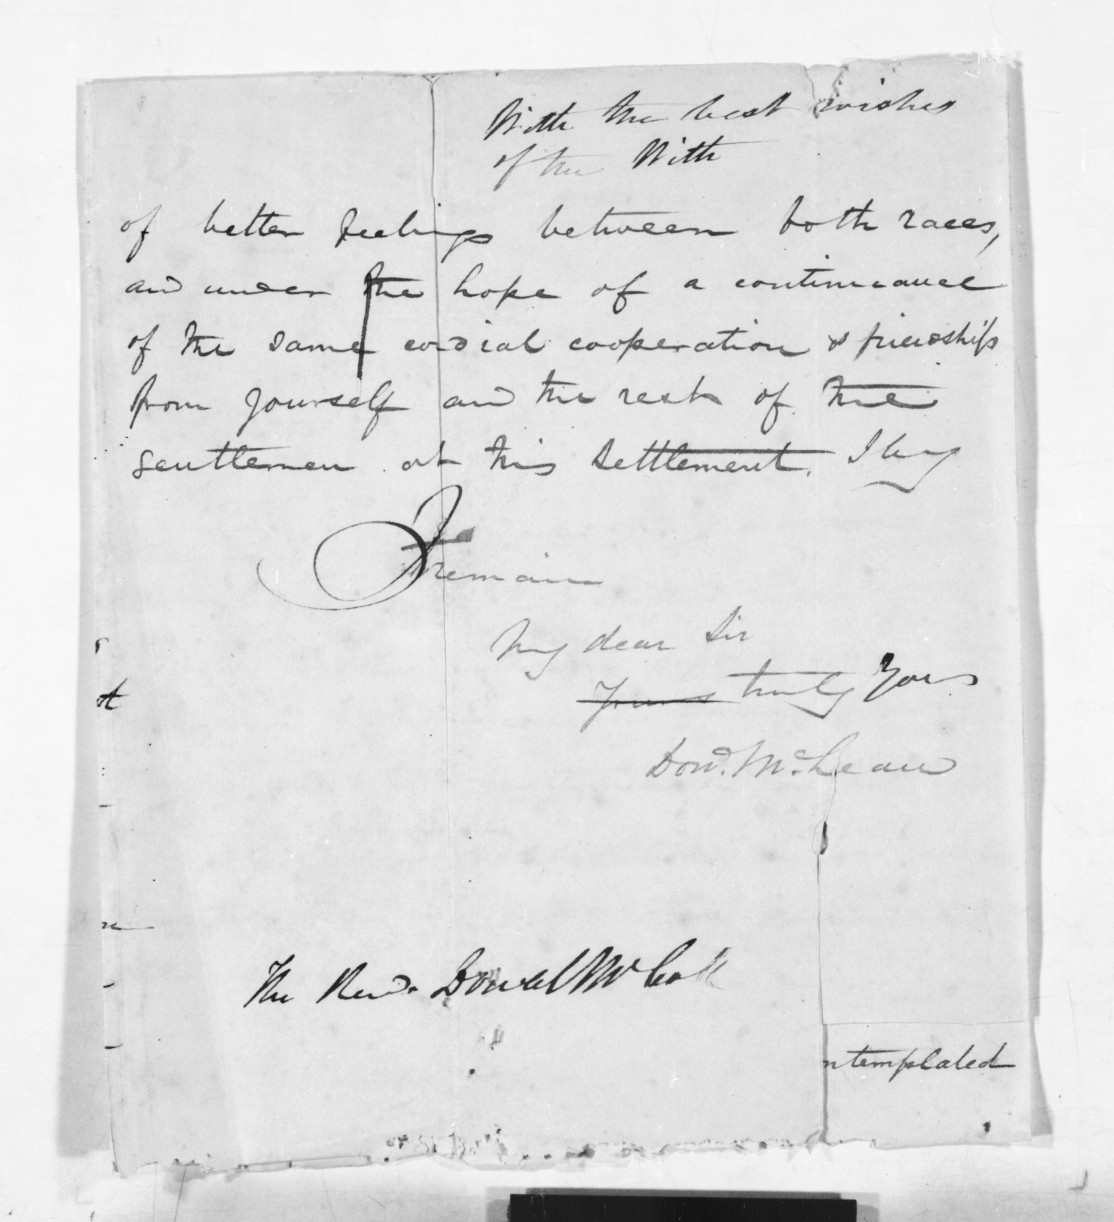 With the best wishes
of the With
of better feelings between both races,
and under the hope of a continuance
of the same cordial cooperation & friendship
from yourself and the rest of the
gentlemen at this settlement, I beg
to remain
My dear Sir
Yours truly Yours
Dond. McLean
The Revd. Donald McColl
ntemplated